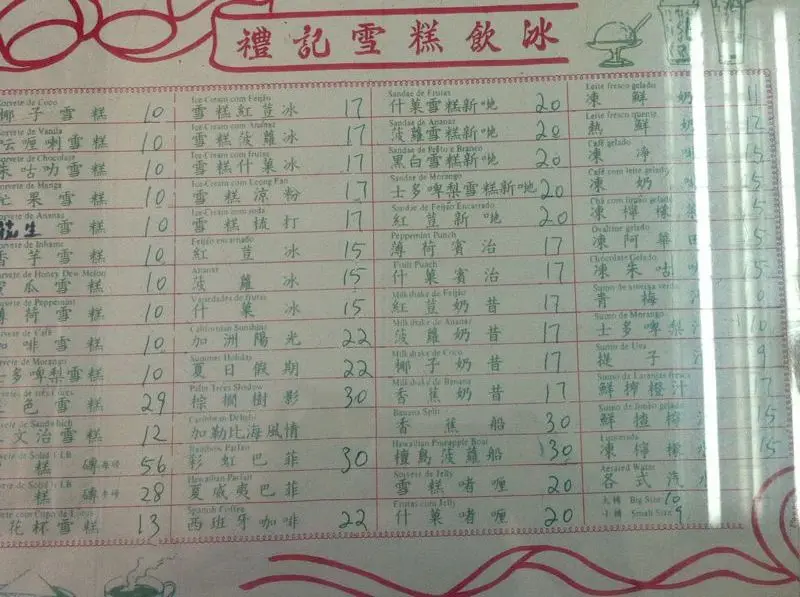 禮記雪糕飲冰
Sorvete de Coco
椰子雪糕 10
Sorvete de Vanula
喱喇雪糕 10
Sorvete de Chocolate
朱咕叻雪糕 10
Sorvete de Manga
芒果雪糕 10
Sorvete de Ananas
花生雪糕 10
Sorvete de Inhame
香芋雪糕 10
de Honey Dew Melon
蜜瓜雪糕 10
de Peppermint
薄荷雪糕 10
de Café
啡雪糕 10
de Morango
士多啤梨雪糕 10
色雪糕 29
de Sandwich
文治雪糕 12
糕磚 56
糕磚 28
花杯雪糕 13
Ice-Cream com Feijão
雪糕紅荳冰 17
Ice-Cream com Ananaz
雪糕菠蘿冰 17
Ice-Cream com frutas
雪糕什菓冰 17
Ice-Cream com Leong Fan
雪糕涼粉 17
Ice-Cream com soda
雪糕梳打 17
Feijão encarnado
紅荳冰 15
Ananaz
菠蘿冰 15
Variedades de frutas
什菓冰 15
Californian Sunshine
加洲陽光 22
Summer Holiday
夏日假期 22
Palm Trees Shadow
棕櫚樹影 30
Caribbean Delight
加勒比海風情
Rainbow Parfait
彩虹巴菲 30
Hawaiian Parfait
夏威夷巴菲
Spanish Coffee
西班牙咖啡 22
Sandae de Frutas
什菓雪糕新地 20
Sandae de Ananaz
菠蘿雪糕新地 20
Sandae de Preto e Branco
黑白雪糕新地 20
Sandae de Morango
士多啤梨雪糕新地 20
Sandae de Feijão Encarnado
紅荳新地 20
Peppermint Punch
薄荷賓治 17
Fruit Punch
什菓賓治 17
Milkshake de Feijão
紅荳奶昔 17
Milkshake de Ananaz
菠蘿奶昔 17
Milkshake de Coco
椰子奶昔 17
Milkshake de Banana
香蕉奶昔 17
Banana Split
香蕉船 30
Hawaiian Pineapple Boat
檀島菠蘿船 30
Sorvete de Jelly
雪糕啫喱 20
Frutas com Jelly
什菓啫喱 20
Leite fresco gelado
凍鮮奶 11
Leite fresco quente
熱鮮奶 12
Café gelado
凍淨 5
Café com leite gelado
凍奶 5
Chá com limão gelado
凍檸檬 5
Ovaltine gelado
凍阿華田 5
Chocolate Gelado
凍朱咕 15
Sumo de ameixa verde
青梅汁 0
Sumo de Morango
士多啤梨汁 10
Sumo de Uva
提子汁 9
Sumo de Laranjas fresca
鮮榨橙汁 7
Sumo de limão gelado
鮮檸 15
Limonada
凍檸檬 15
Aerated Water
各式汽水
大樽 Big Size 10
小樽 Small Size 9